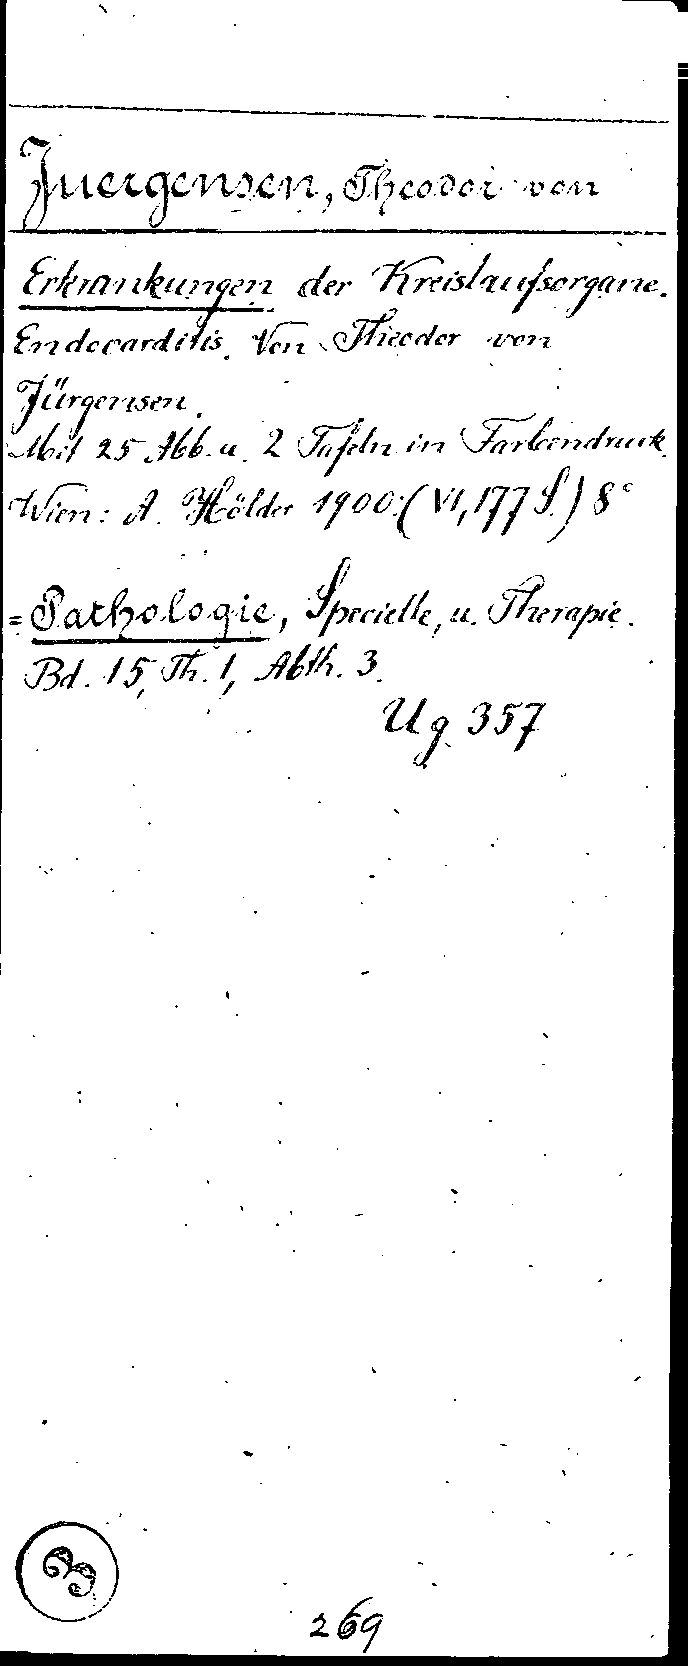 Juergensen, Theodor von
Erkrankungen der Kreislaufsorgane.
Endocarditis. Von Theodor von
Jürgensen.
Mit 25 Abb. u. 2 Tafeln in Farbendruck.
Wien: A. Hölder 1900. (VI, 177 S.) 8°
= Pathologie, Specielle, u. Therapie.
Bd. 15, Th. 1, Abth. 3.
Ug. 357
269